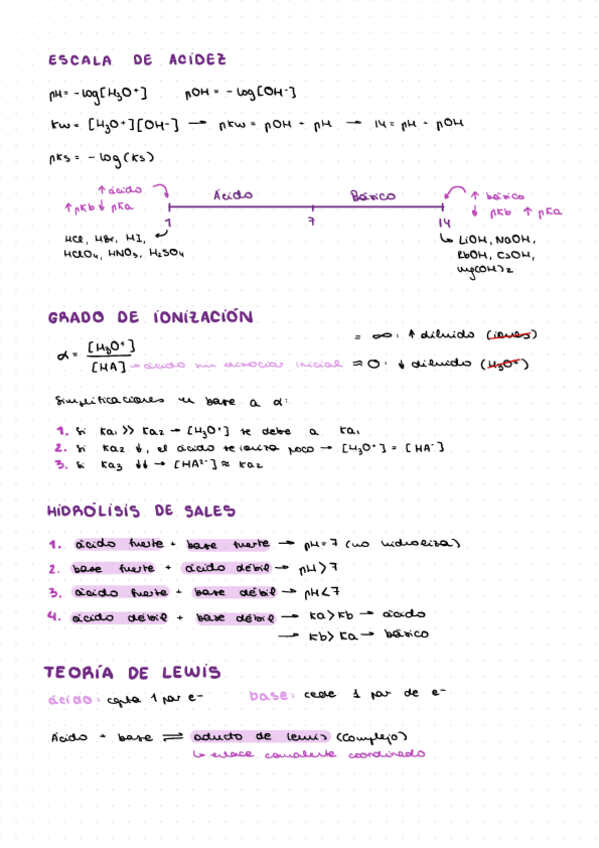 ESCALA DE ACIDEZ
pH = -log[H₃O⁺]   pOH = -log[OH⁻]
Kw = [H₃O⁺][OH⁻] → pKw = pOH + pH → 14 = pH + pOH
pKs = -log(Ks)
↑ ácido   Ácido   Básico   ↑ básico
↑ pKb ↓ pKa   ↓ pKb ↑ pKa
1   7   14
HCl, HBr, HI,   LiOH, NaOH,
HClO₄, HNO₃, H₂SO₄   RbOH, CsOH,
Mg(OH)₂
GRADO DE IONIZACIÓN
= ∞: ↑ diluido (iones)
α = [H₃O⁺] / [HA] → ácido sin disociar inicial   ≈ 0: ↓ diluido (H₃O⁺)
Simplificaciones en base a α:
1. Si Ka₁ >> Ka₂ → [H₃O⁺] se debe a Ka₁
2. Si Ka₂ ↓, el ácido se ioniza poco → [H₃O⁺] = [HA⁻]
3. Si Ka₃ ↓↓ → [HA²⁻] ≈ Ka₂
HIDRÓLISIS DE SALES
1. ácido fuerte + base fuerte → pH = 7 (no hidroliza)
2. base fuerte + ácido débil → pH > 7
3. ácido fuerte + base débil → pH < 7
4. ácido débil + base débil → Ka > Kb → ácido
→ Kb > Ka → básico
TEORÍA DE LEWIS
ácido: capta 1 par e-   base: cede 1 par de e-
Ácido + base ⇌ aducto de lewis (complejo)
↳ enlace covalente coordinado